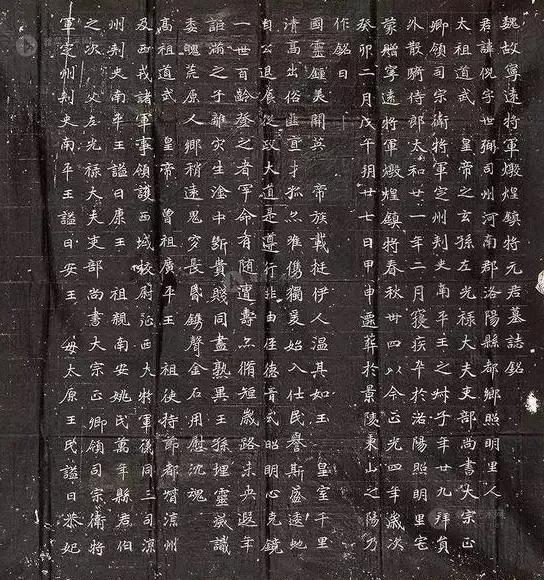 魏故寧遠將軍燉煌鎮將元君墓誌銘
君諱倪字世弼司州河南郡洛陽縣都鄉照明里人
太祖道武 皇帝之玄孫左光祿大夫吏部尚書大宗正
卿領司宗衛將軍定州刺史南平王之䏿子年廿九拜員
外散騎侍郎太和廿一年二月寢疾卒於洛陽照明里宅
蒙贈寧遠將軍燉煌鎮將春秋卌四以今正光四年歲次
癸卯二月戊午朔廿七日甲申遷葬於景陵東山之陽乃
作銘曰
國靈鍾美開英 帝族載挺伊人溫其如玉 皇室千里
清高出俗匪直才孤亦唯儁獨爰始入仕民譽斯盛逶地
自公退食從政大道是遵行非由徑德音式昭明心克鏡
一世百齡登之者罕命有隨遭壽亦脩短歲路未央遐年
詎滿之子離灾生塗中斷貴賤同盡孰異王孫埋靈滅識
委魄荒原人鄉稍遠思穸長昏鐫聲金石用慰沈魂
高祖道武 皇帝 曾祖廣平王 祖使持節都督涼州
及西戎諸軍事領護西域校尉征西大將軍儀同三司涼
州刺史南平王謚曰康王 祖親南安姚氏萬年縣君伯
之次 父左光祿大夫吏部尚書大宗正卿領司宗衛將
軍定州刺史南平王謚曰安王 母太原王氏謚曰恭妃